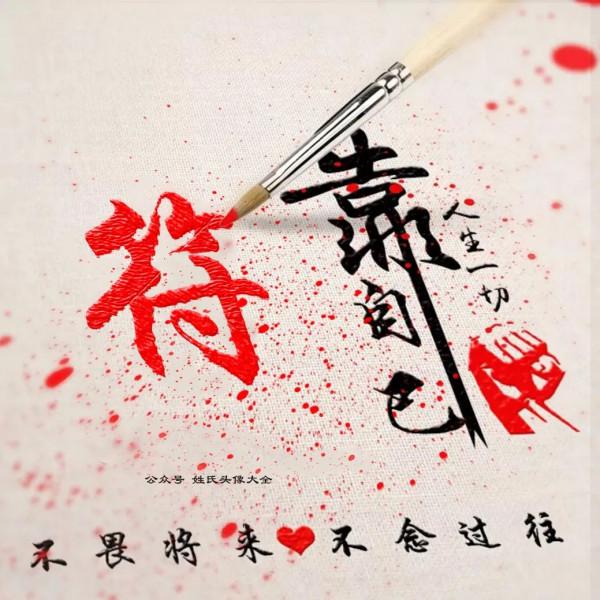 符
靠自己
人生一切
公众号 姓氏头像大全
不畏将来 不念过往